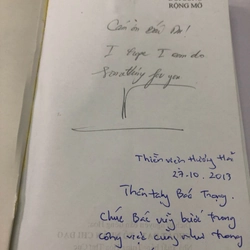 RỘNG MỞ
Cám ơn Bác Do!
I hope I can do
Something for you
Thiền viện thường
27.10.2013
Thân tặng Bác Trọng.
Chúc Bác vững bước trong
công việc cũng như trong
CHỈ ĐẠO